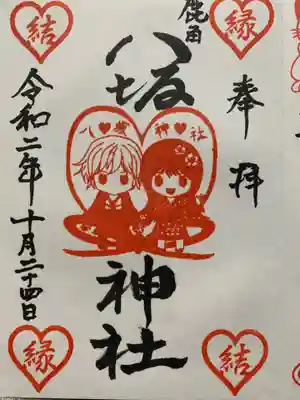 縁
奉拝
鹿角
八坂神社
八♥坂 神♥社
結
令和二年十月二十四日
結
縁